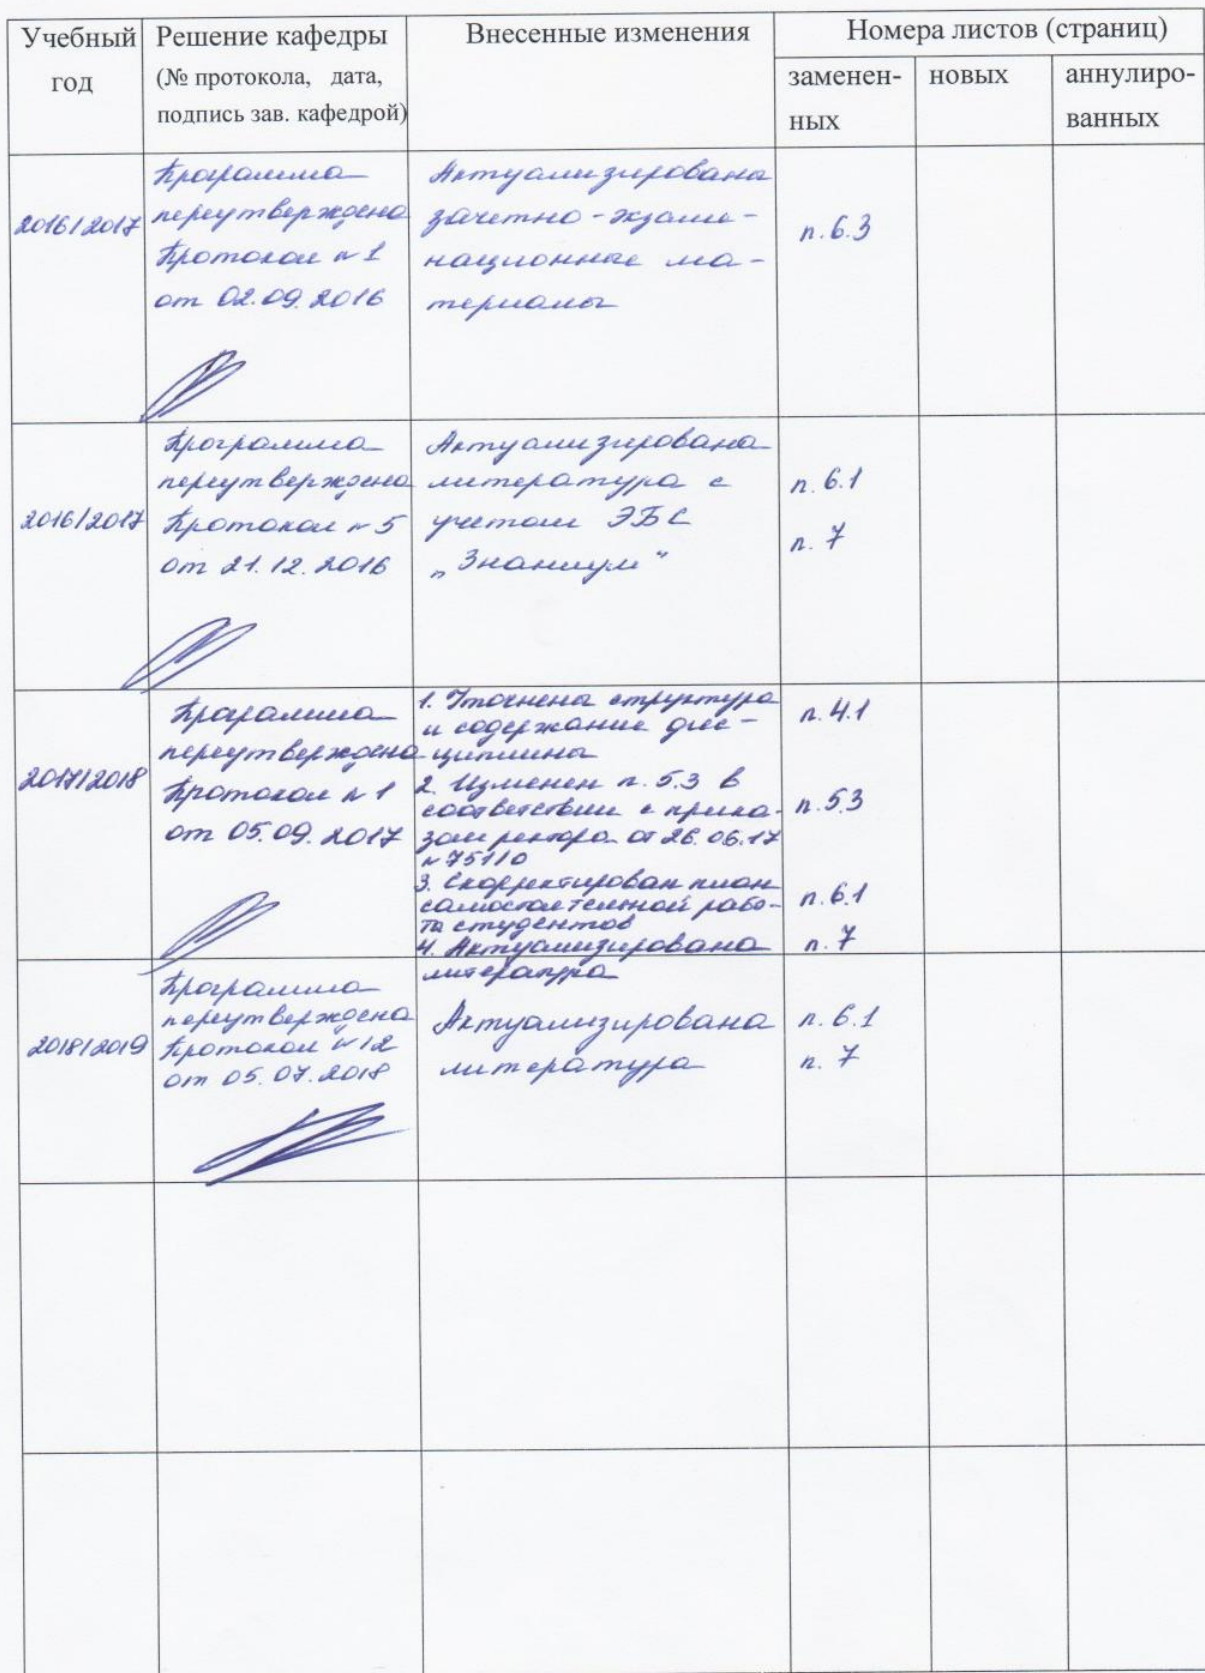 Учебный год
Решение кафедры
(№ протокола, дата,
подпись зав. кафедрой)
Внесенные изменения
Номера листов (страниц)
заменен-
ных
новых
аннулиро-
ванных
2016/2017
Программа
переутверждена
Протокол № 1
от 02.09.2016
Актуализированы
зачетно-экзаме-
национные ма-
териалы
п. 6.3
2016/2017
Программа
переутверждена
Протокол № 5
от 21.12.2016
Актуализирована
литература с
учетом ЭБС
„Знаниум“
п. 6.1
п. 7
2017/2018
Программа
переутверждена
Протокол № 1
от 05.09.2017
1. Уточнена структура
и содержание дис-
циплины
2. Изменен п. 5.3 в
соответствии с прика-
зом ректора от 26.06.17
№ 751/0
3. Скорректирован план
самостоятельной рабо-
ты студентов
4. Актуализирована
литература
п. 4.1
п. 5.3
п. 6.1
п. 7
2018/2019
Программа
переутверждена
Протокол № 12
от 05.07.2018
Актуализирована
литература
п. 6.1
п. 7